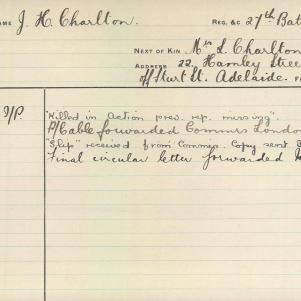 NAME J. H. Charlton. REG. &c 27th Bat
NEXT OF KIN Mrs L. Charlton
ADDRESS 22, Hamley Stree
off Sturt St. Adelaide.
"Killed in Action prev. rep. missing".
Cable forwarded Commrs London
"Slip" received from Commrs. Copy sent
Final circular letter forwarded